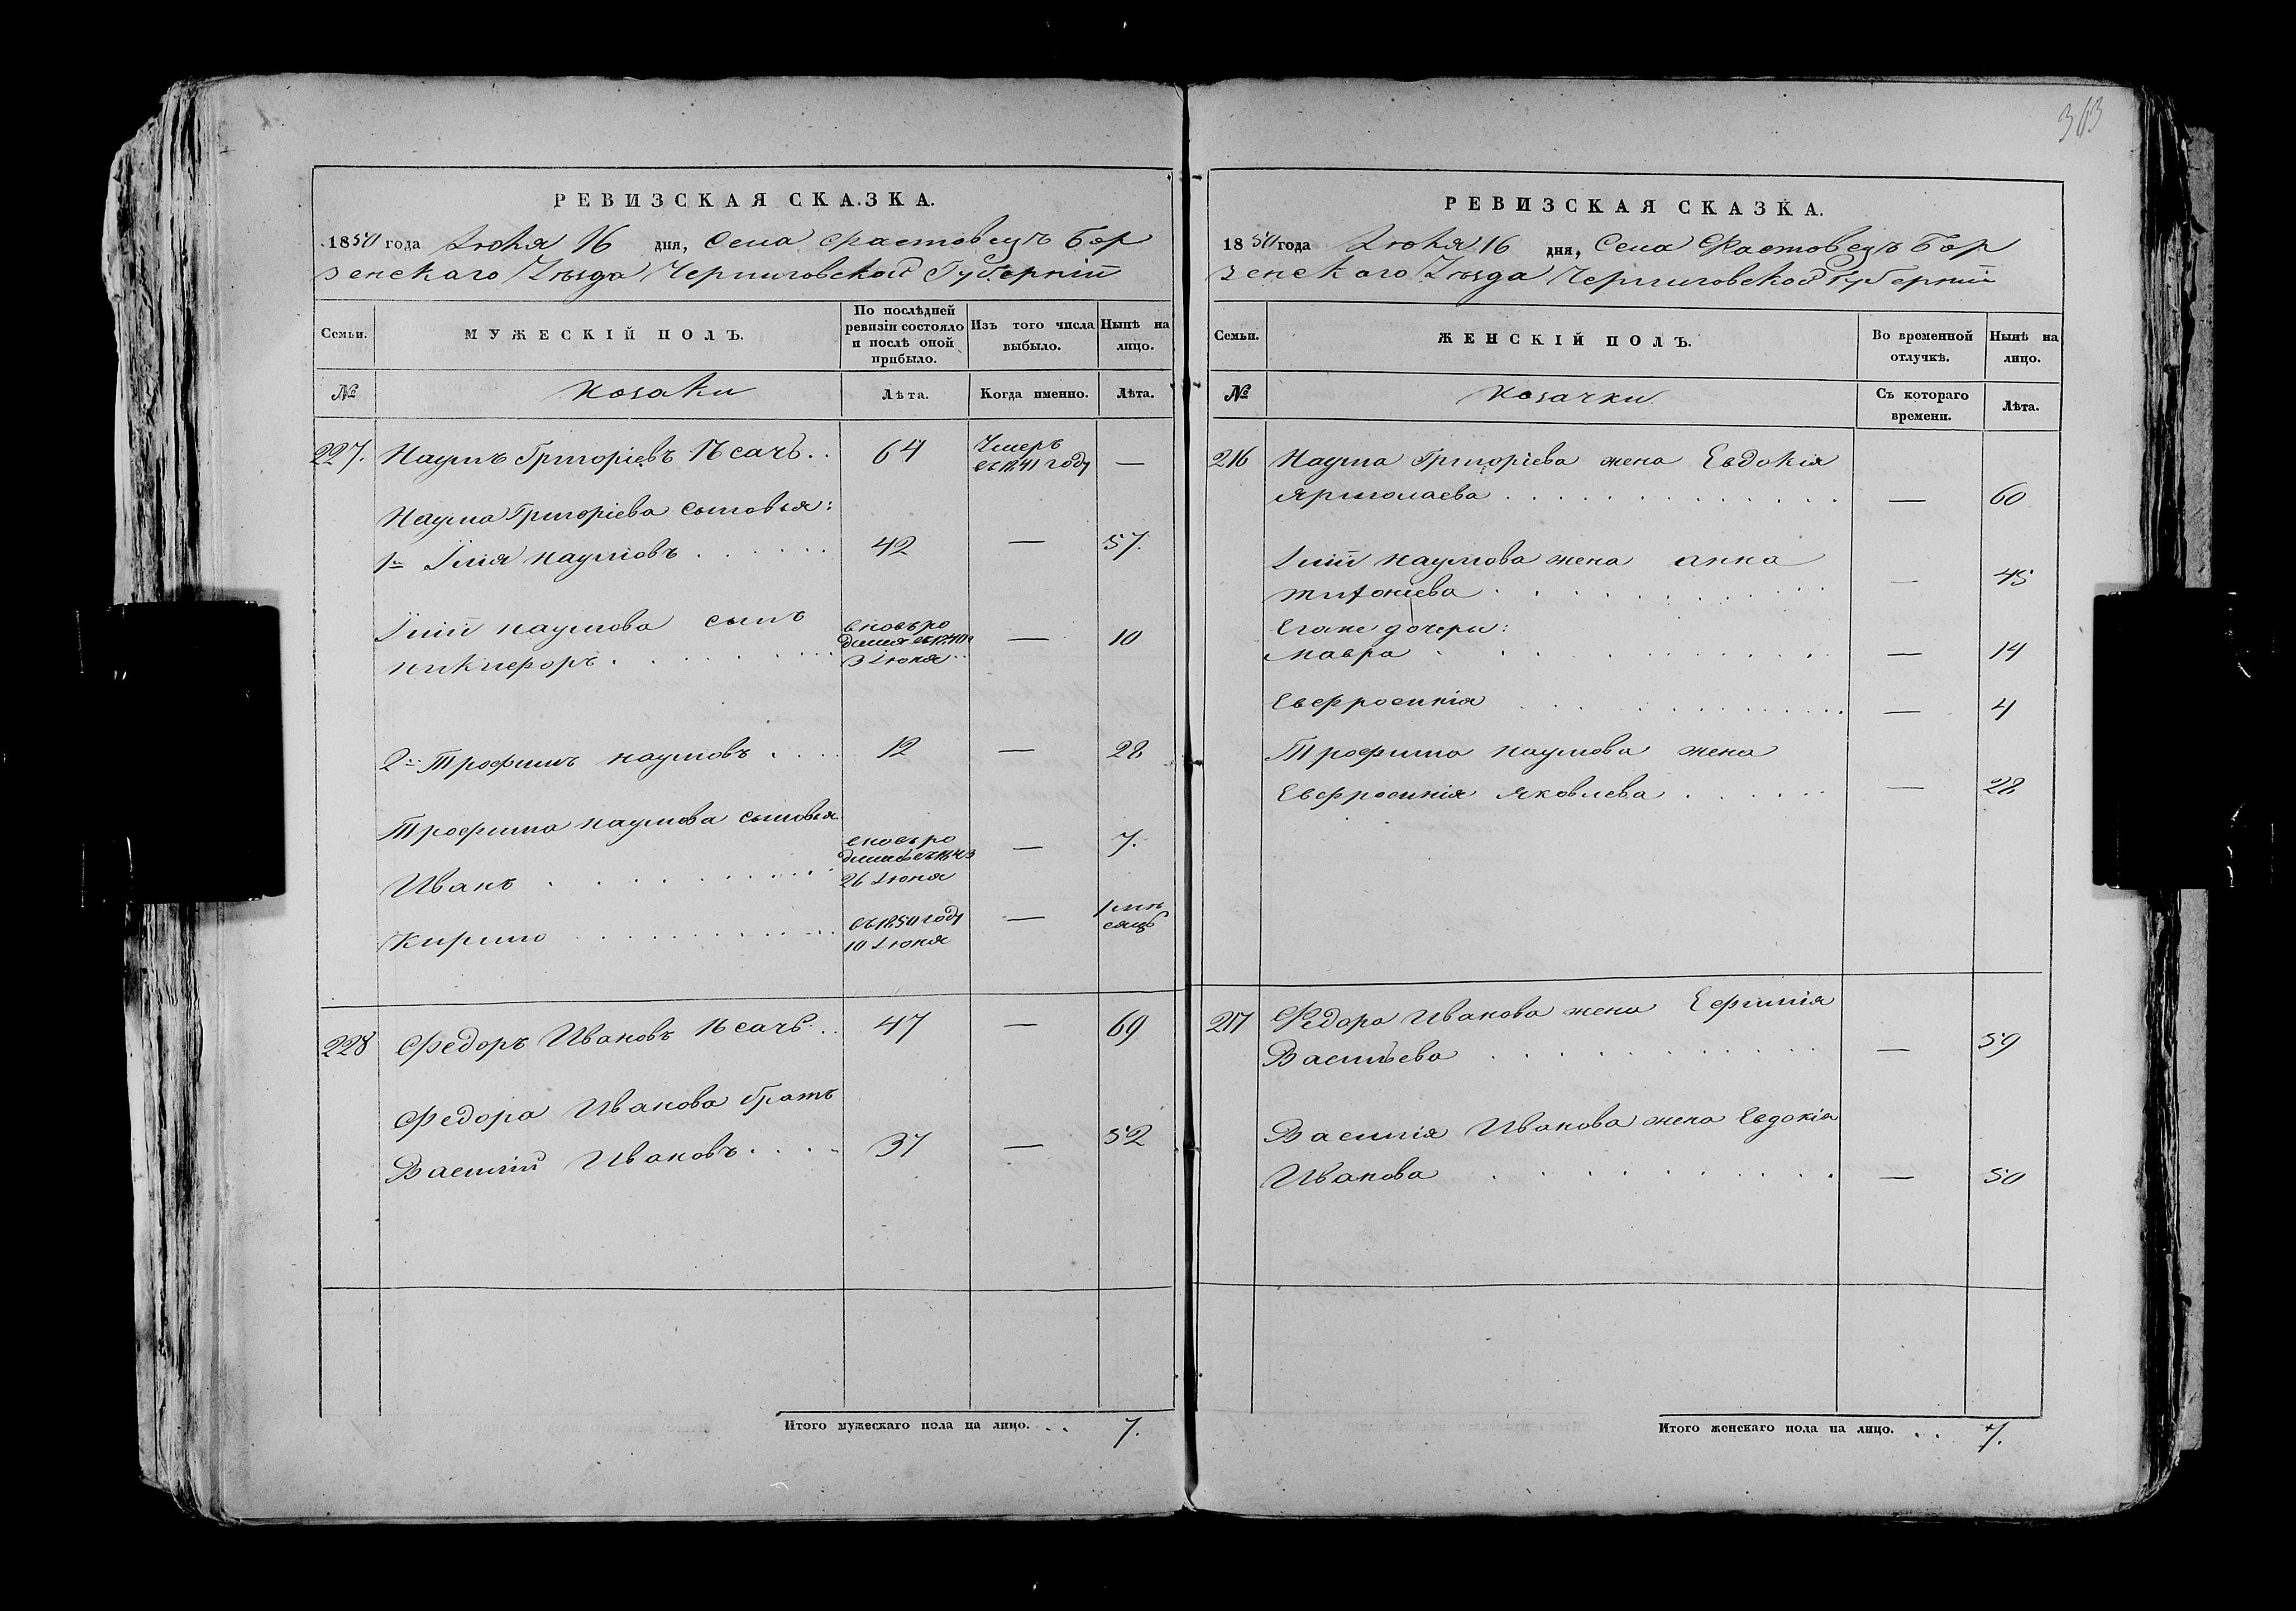 363
РЕВИЗСКАЯ СКАЗКА.
1850 года Іюля 16 дня, Села Фастовецъ Бор
зенскаго Уѣзда Черниговской Губерніи
Семьи.
МУЖЕСКІЙ ПОЛЪ.
По послѣдней ревизіи состояло и послѣ оной прибыло.
Изъ того числа выбыло.
Нынѣ на лицо.
№
Козаки
Лѣта.
Когда именно.
Лѣта.
227. Наумъ Григоріевъ Псачъ. . 64 Умеръ въ 1841 году —
Наума Григоріева сыновья:
1й Илія Наумовъ . . . . . . 42 — 57.
Иліи Наумова сынъ
Никифоръ . . . . . . . . вновь ро
дился въ 1840
3 Іюня — 10
2й Трофимъ Наумовъ . . . . 12 — 28
Трофима Наумова сыновья
Иванъ . . . . . . . . . вновь ро
дился въ 1843
26 Іюня — 7.
Кирило . . . . . . . . . въ 1850 году
10 Іюня — 1 мѣ
сяцъ
228 Федоръ Ивановъ Псачъ . . 47 — 69
Федора Иванова братъ
Василій Ивановъ . . . . 37 — 52
Итого мужескаго пола на лицо. . . 7.
РЕВИЗСКАЯ СКАЗКА.
1850 года Іюля 16 дня, Села Фастовецъ Бор
зенскаго Уѣзда Черниговской Губерніи
Семьи.
ЖЕНСКІЙ ПОЛЪ.
Во временной отлучкѣ.
Нынѣ на лицо.
№
Козачки
Съ котораго времени.
Лѣта.
216 Наума Григоріева жена Евдокія
Ярмолаева . . . . . . . . . . . . — 60
Иліи Наумова жена Анна
. . . . . . . . . . . . — 45
Егоже дочери:
Мавра . . . . . . . . . — 14
Евфросинія . . . . . . . . . . — 4
Трофима Наумова жена
Евфросинія Яковлева . . . . . . — 28
217 Федора Иванова жена Ефимія
Васильева . . . . . . . . . . — 59
Василія Иванова жена Евдокія
Иванова . . . . . . . . . . — 50
Итого женскаго пола на лицо. . . 7.